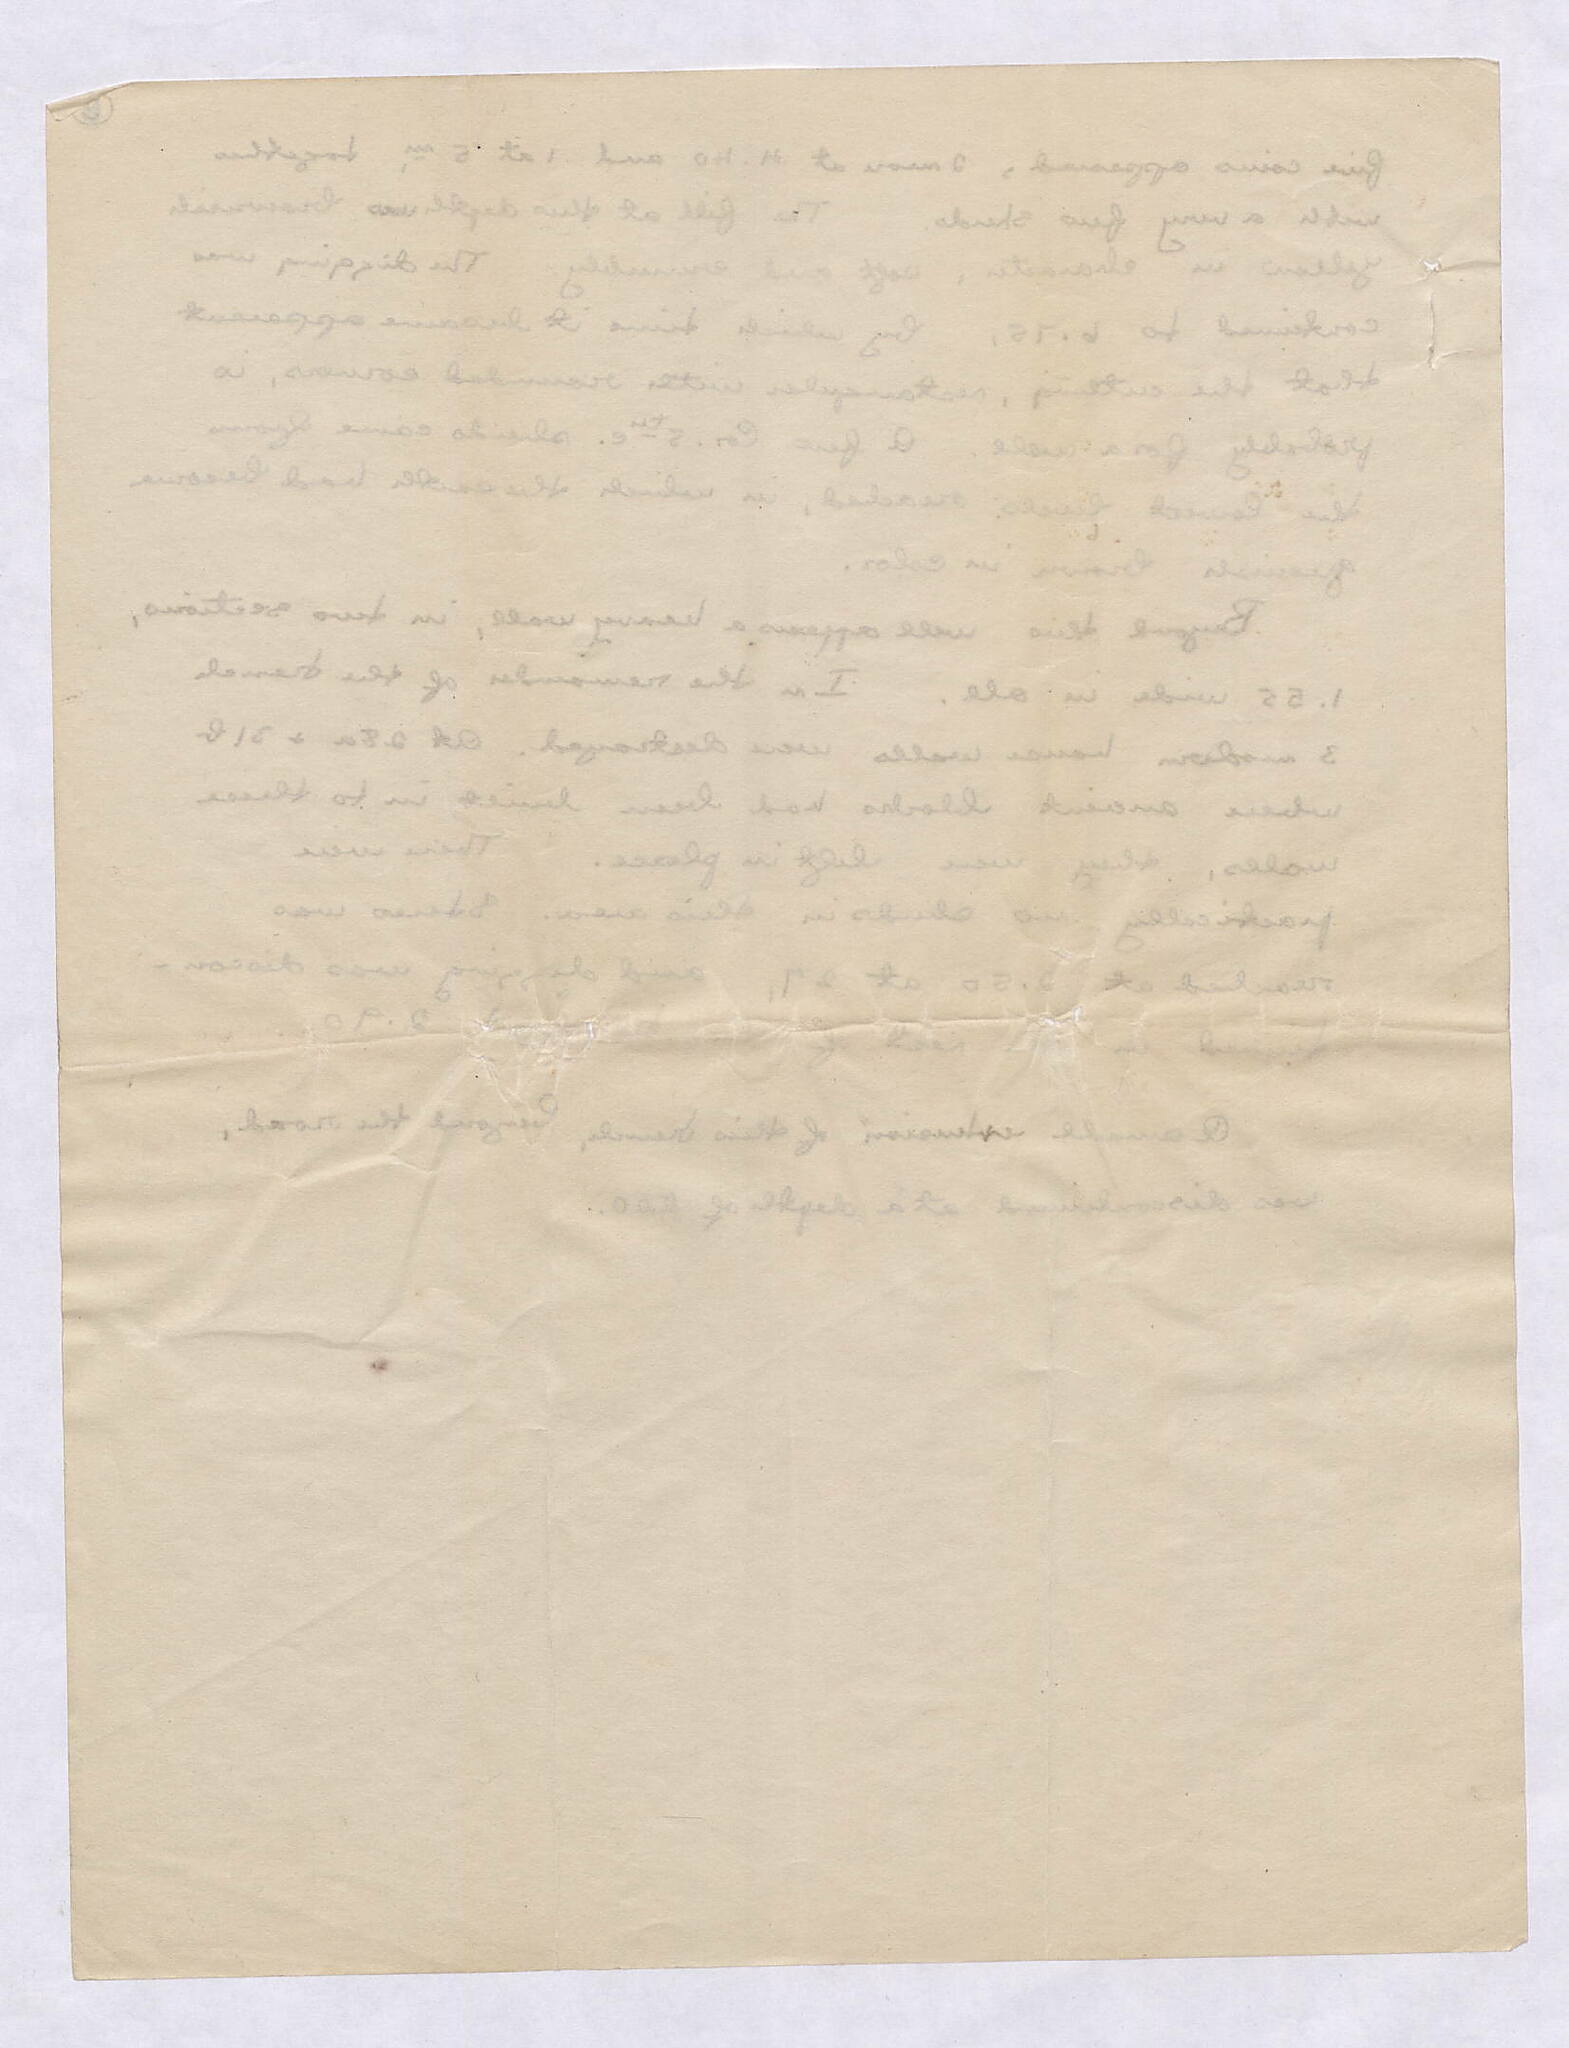 five coins appeared, 2 more at 4.40 and 1 at 5 m, together
with a very few sherds. The fill at this depth was brownish
yellow in character, soft and crumbly. The digging was
continued to 6.75, by which time it became apparent
that the cutting, rectangular with rounded corners, is
probably for a well. A few Cor. 5th c. sherds came from
the lowest levels reached, in which the earth had become
greenish brown in color.
Beyond this well appears a heavy wall, in two sections,
1.55 wide in all. In the remainder of the trench
3 modern house walls were destroyed. At 28a & 31b
where ancient blocks had been built in to these
walls, they were left in place. There were
practically no sherds in this area. Stereo was
reached at 2.50 at 29, and digging was discon-
tinued in the rest of 2.90
A small extension of this trench, beyond the road,
was discontinued at a depth of